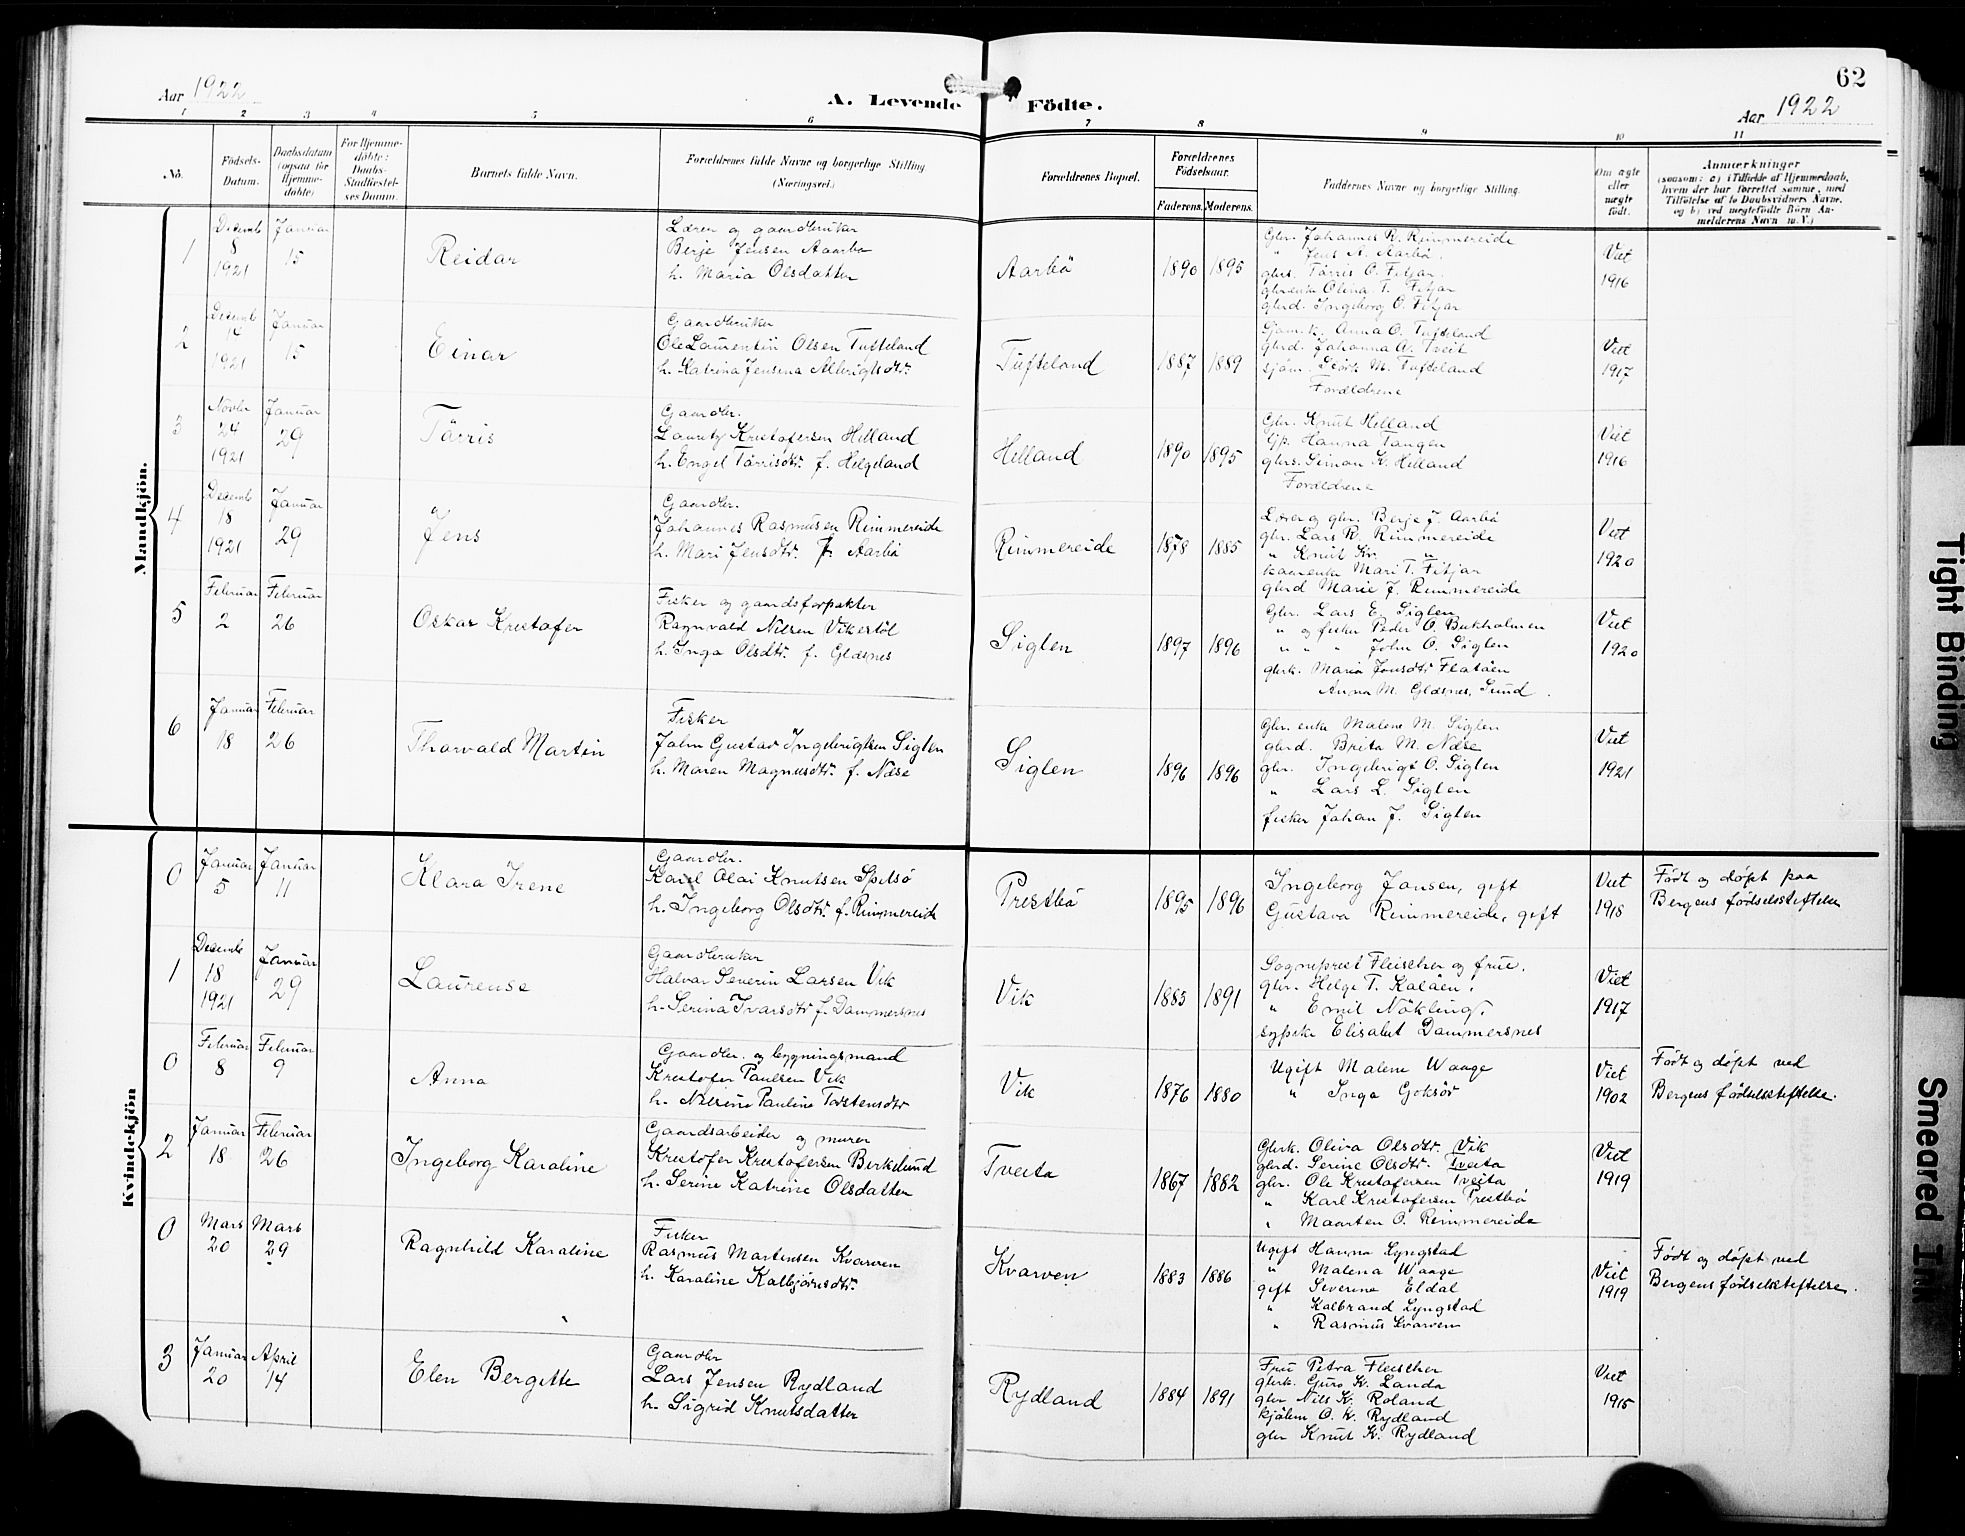 62
Aar 1922
A. Levende Födte.
Aar 1922
1 2 3 4 5 6 7 8 9 10 11
No.
Födsels-Datum.
Daabsdatum (ogsaa for Hjemme-døbte)
For Hjemme-döbte: Daabs-Stadfæstel-ses Datum.
Barnets fulde Navn.
Forældrenes fulde Navne og borgerlige Stilling (Næringsvei.)
Forældrenes Bopæl.
Forældrenes Födselsaar.
Faderens. Moderens.
Faddernes Navne og borgerlige Stilling.
Om ægte eller uægte født.
Anmærkninger
(saasom: a) i Tilfælde af Hjemmedaab, hvem der har forrettet samme, med Tilföielse af to Daabsvidners Navne, og b) ved uægtefödte Börn An-melderens Navn m. V.)
Mandkjön.
1
Decemb 8 1921
Januar 15
Reidar
Lærer og gaardbruker
Berje Jensen Aarbø
h. Maria Olsdatter
Aarbö
1890 1895
Gbr. Johannes R. Rimmereide
" Jens A. Aarbö.
gbrs. Törris O. Fitjar.
gbrenke Oliva T. Fitjar
gbrd. Ingeborg O. Fitjar
Viet 1916
2
Decemb 14 1921
Januar 15
Einar
Gaardbruker
Ole Laurentin Olsen Tufteland
h. Katrina Jensena Albrigtsdtr.
Tufteland
1887 1889
Sjöm.k. Anna O. Tufteland
gbrd. Johanna A. Tveit
sjöm. M. Tufteland
Forældrene
Viet 1917
3
Novbr 24 1921
Januar 29
Törris
Gaardbr.
Lauritz Kristofersen Helland
h. Engel Törrisdtr. f. Helgeland
Helland
1890 1895
Gbr. Knut Helland
Gp. Hanna Tangen
gbrs. Simon K. Helland
Forældrene
Viet 1916
4
Decemb 18 1921
Januar 29
Jens
Gaardbr.
Johannes Rasmusen Rimmereide
h. Mari Jensdtr. f. Aarbö
Rimmereide
1878 1885
Lærer og gbr. Berje J. Aarbö
gbr. Lars R. Rimmereide
" Knut Kr. "
kaarenke Mari T. Fitjar
gbrd Marie J. Rimmereide
Viet 1920
5
Februar 2
Februar 26
Oskar Kristofer
Fisker og gaardsforpakter
Ragnvald Nilsen Vikestöl
h. Inga Olsdtr. f. Glæsnes
Siglen
1897 1896
Gbr. Lars E. Siglen
" og fisker Peder O. Bukholmen
" " " John O. Siglen
gbrk. Maria Jonsdtr Flatöen
Anna M. Glæsnes, Sund.
Viet 1920
6
Januar 18
Februar 26
Thorvald Martin
Fisker
John Gustav Ingebrigtsen Siglen
h. Maren Magnusdtr. f. Næse
Siglen
1896 1896
Gbr. enke Malene M. Siglen
gbrd. Brita M. Næse
gbr. Ingebrigt O. Siglen
" Lars L. Siglen
fisker Johan J. Siglen
Viet 1921
Kvindekjön
0
Januar 5
Januar 11
Klara Irene
Gaardbr.
Karl Olai Knutsen Spitsö
h. Ingeborg Olsdtr. f. Rimmereide
Prestbö
1895 1896
Ingeborg Jansen, gift
Gustava Rimmereide, gift
Viet 1918
Født og døpt paa
Bergens fødselsstiftelse
1
Decembr 18 1921
Januar 29
Laurense
Gaardbruker
Halvar Severin Larsen Vik
h. Serina Ivarsdtr f. Dammersnes
Vik
1883 1891
Sogneprest Fleischer og frue.
gbr. Helge T. Kalöen.
" Emil Nökling.
Elisabet Dammersnes
Viet 1917
0
Februar 8
Februar 9
Anna
Gaardbr. og bygningsmand
Kristofer Paulsen Vik
h. Nilsine Pauline Torstensdtr
Vik
1876 1880
Ugift Malene Waage
" Inga Goksör
Viet 1902
Født og døpt ved
Bergens fødselsstiftelse.
2
Januar 18
Februar 26
Ingeborg Karoline
Gaardsarbeider og murer
Kristofer Kristofersen Birkelund
h. Serine Katrine Olsdatter
Tveita
1867 1882
Gbrk. Oliva Olsdtr. Vik
gbrd. Serine Olsdtr. Tveita
gbr. Ole Kristofersen Tveita
" Karl Kristofersen Prestbö
" Maarten O. Rimmereide
Viet 1919
0
Mars 20
Mars 29
Ragnhild Karoline
Fisker
Rasmus Martinsen Kvarven
h. Karoline Kolbjörnsdtr.
Kvarven
1883 1886
Ugift Hanna Lyngstad
" Malena Waage
gift Severine Eldal
" Kolbrand Lyngstad
" Rasmus Kvarven
Viet 1919
Født og døpt ved
Bergens fødselsstiftelse.
3
Januar 20
April 14
Elen Bergitte
Gaardbr
Lars Jensen Rydland
h. Sigrid Knutsdatter
Rydland
1884 1891
Frue Petra Fleischer
gbrk. Guro K. Landa
gbr Nils K. Roland
kjölem O. K. Rydland
gbr Knut K. Rydland
Viet 1915
Tight Binding
Smeared Ink